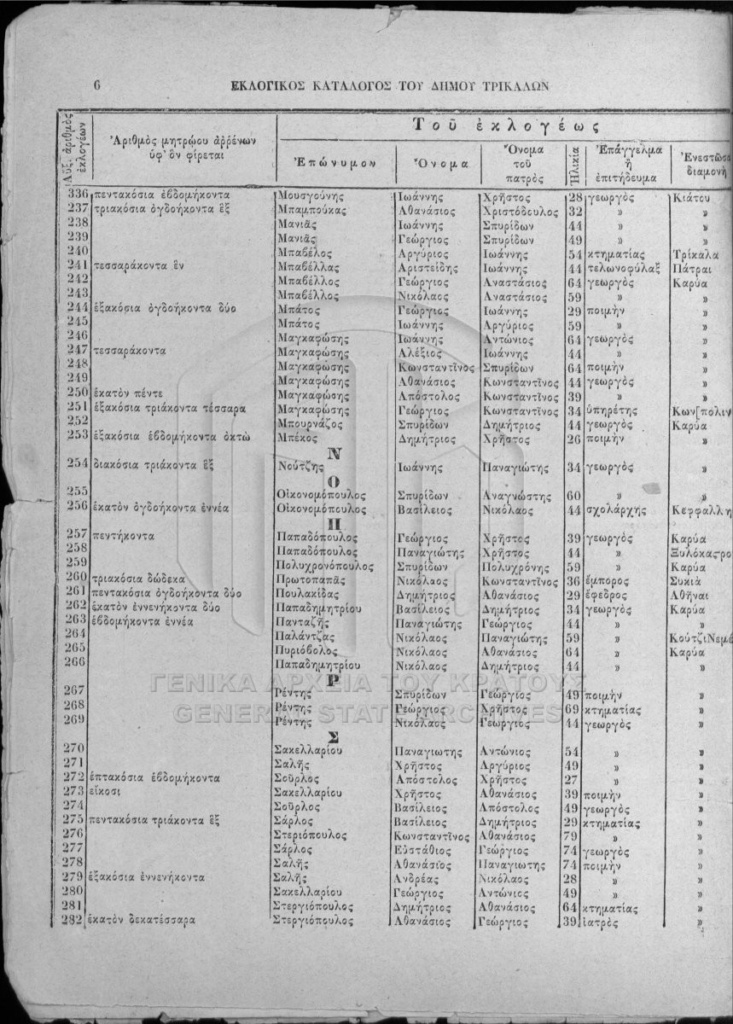 6 ΕΚΛΟΓΙΚΟΣ ΚΑΤΑΛΟΓΟΣ ΤΟΥ ΔΗΜΟΥ ΤΡΙΚΑΛΩΝ
Αὔξ. ἀριθμὸς ἐκλογέων
Ἀριθμὸς μητρῴου ἀρρένων ὑφ' ὃν φέρεται
Τοῦ ἐκλογέως
Ἐπώνυμον Ὄνομα Ὄνομα τοῦ πατρὸς Ἡλικία Ἐπάγγελμα ἢ ἐπιτήδευμα Ἐνεστῶσα διαμονὴ
336 πεντακόσια ἑβδομήκοντα Μουσγούνης Ἰωάννης Χρῆστος 28 γεωργὸς Κιάτου
237 τριακόσια ὀγδοήκοντα ἓξ Μπαμπούκας Ἀθανάσιος Χριστόδουλος 32 » »
238 Μανιᾶς Ἰωάννης Σπυρίδων 44 » »
239 Μανιᾶς Γεώργιος Σπυρίδων 49 » »
240 Μπαβέλος Ἀργύριος Ἰωάννης 54 κτηματίας Τρίκαλα
241 τεσσαράκοντα ἓν Μπαβέλλας Ἀριστείδης Ἰωάννης 44 τελωνοφύλαξ Πάτραι
242 Μπαβέλλος Γεώργιος Ἀναστάσιος 64 γεωργὸς Καρύα
243 Μπαβέλλος Νικόλαος Ἀναστάσιος 59 » »
244 ἑξακόσια ὀγδοήκοντα δύο Μπάτος Γεώργιος Ἰωάννης 29 ποιμὴν »
245 Μπάτος Ἰωάννης Ἀργύριος 59 » »
246 Μαγκαφώσης Ἰωάννης Ἀντώνιος 64 γεωργὸς »
247 τεσσαράκοντα Μαγκαφώσης Ἀλέξιος Ἰωάννης 44 » »
248 Μαγκαφώσης Κωνσταντῖνος Σπυρίδων 64 ποιμὴν »
249 Μαγκαφώσης Ἀθανάσιος Κωνσταντῖνος 44 γεωργὸς »
250 ἑκατὸν πέντε Μαγκαφώσης Ἀπόστολος Κωνσταντῖνος 39 » »
251 ἑξακόσια τριάκοντα τέσσαρα Μαγκαφώσης Γεώργιος Κωνσταντῖνος 34 ὑπηρέτης Κων[πολιν
252 Μπουρνάζος Σπυρίδων Δημήτριος 44 γεωργὸς Καρύα
253 ἑξακόσια ἑβδομήκοντα ὀκτὼ Μπέκος Δημήτριος Χρῆστος 26 ποιμὴν »
Ν
254 διακόσια τριάκοντα ἓξ Νούτζης Ἰωάννης Παναγιώτης 34 γεωργὸς »
Ο
255 Οἰκονομόπουλος Σπυρίδων Ἀναγνώστης 60 » »
256 ἑκατὸν ὀγδοήκοντα ἐννέα Οἰκονομόπουλος Βασίλειος Νικόλαος 44 σχολάρχης Κεφαλλη
Π
257 πεντήκοντα Παπαδόπουλος Γεώργιος Χρῆστος 39 γεωργὸς Καρύα
258 Παπαδόπουλος Παναγιώτης Χρῆστος 44 » Ξυλόκαςρο
259 Πολυχρονόπουλος Σπυρίδων Πολυχρόνης 59 » Καρύα
260 τριακόσια δώδεκα Πρωτοπαπᾶς Νικόλαος Κωνσταντῖνος 36 ἔμπορος Συκιὰ
261 πεντακόσια ὀγδοήκοντα δύο Πουλακίδας Δημήτριος Ἀθανάσιος 29 ἔφεδρος Ἀθῆναι
262 ἑκατὸν ἐννενήκοντα δύο Παπαδημητρίου Βασίλειος Δημήτριος 34 γεωργὸς Καρύα
263 ἑβδομήκοντα ἐννέα Πανταζῆς Παναγιώτης Γεώργιος 44 » »
264 Παλάντζας Νικόλαος Παναγιώτης 59 » ΚούτζιΝεμέ
265 Πυριόβολος Νικόλαος Ἀθανάσιος 64 » Καρύα
266 Παπαδημητρίου Νικόλαος Δημήτριος 44 » »
Ρ
267 Ρέντης Σπυρίδων Γεώργιος 49 ποιμὴν »
268 Ρέντης Γεώργιος Χρῆστος 69 κτηματίας »
269 Ρέντης Νικόλαος Γεώργιος 44 γεωργὸς »
Σ
270 Σακελλαρίου Παναγιωτης Ἀντώνιος 54 » »
271 Σαλῆς Χρῆστος Ἀργύριος 49 » »
272 ἑπτακόσια ἑβδομήκοντα Σοῦρλος Ἀπόστολος Χρῆστος 27 » »
273 εἴκοσι Σακελλαρίου Χρῆστος Ἀθανάσιος 39 ποιμὴν »
274 Σοῦρλος Βασίλειος Ἀπόστολος 49 γεωργὸς »
275 πεντακόσια τριάκοντα ἓξ Σάρλος Βασίλειος Δημήτριος 29 κτηματίας »
276 Στεριόπουλος Κωνσταντῖνος Ἀθανάσιος 79 » »
277 Σάρλος Εὐστάθιος Γεώργιος 74 γεωργὸς »
278 Σαλῆς Ἀθανάσιος Παναγιωτης 74 ποιμὴν »
279 ἑξακόσια ἐννενήκοντα Σαλῆς Ἀνδρέας Νικόλαος 28 » »
280 Σακελλαρίου Γεώργιος Ἀντώνιος 49 » »
281 Στεργιόπουλος Δημήτριος Ἀθανάσιος 64 κτηματίας »
282 ἑκατὸν δεκατέσσαρα Στεργιόπουλος Ἀθανάσιος Γεώργιος 39 ἰατρὸς »
ΓΕΝΙΚΑ ΑΡΧΕΙΑ ΤΟΥ ΚΡΑΤΟΥΣ
GENERAL STATE ARCHIVES